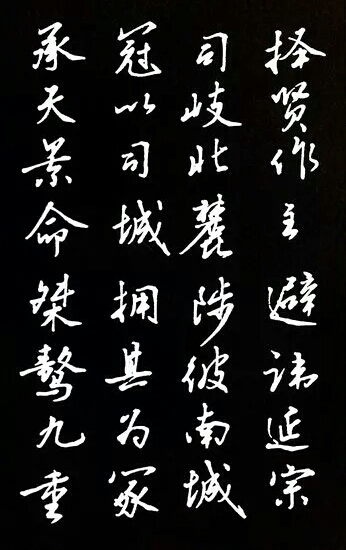 择贤作主避讳延宗
司岐北麓陟彼南城
冠以司城拥其为冢
承天景命桀骜九重